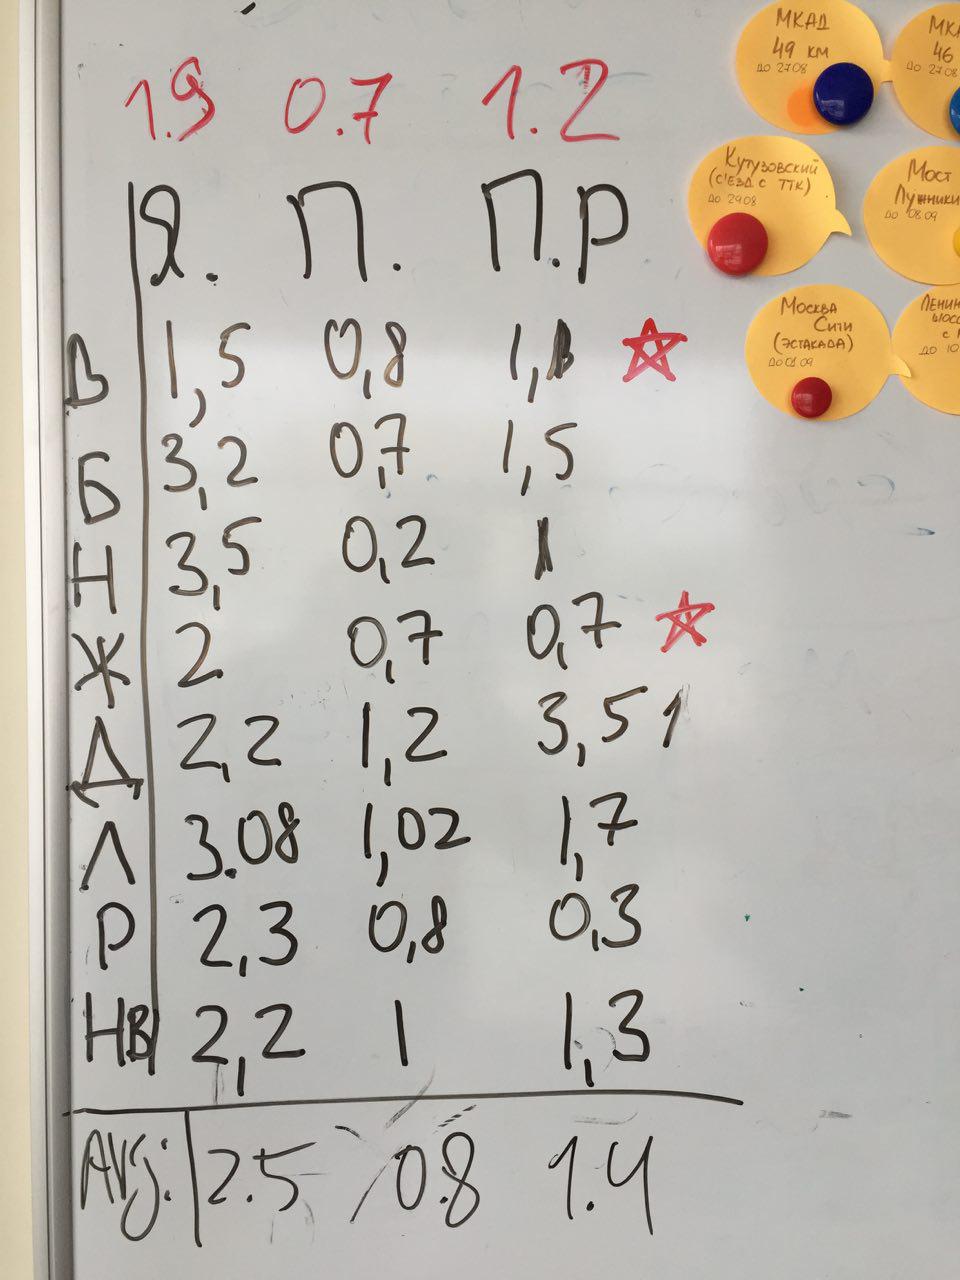 1.9 0.7 1.2
Я. П. П.Р
В 1,5 0,8 1,1
Б 3,2 0,7 1,5
Н 3,5 0,2 1
Ж 2 0,7 0,7
Д 2,2 1,2 3,51
Л 3.08 1,02 1,7
Р 2,3 0,8 0,3
НВ 2,2 1 1,3
AVG: 2.5 0.8 1.4
МКАД
49 КМ
ДО 27.08
46
ДО 27.08
КУТУЗОВСКИЙ
(С'ЕЗД С ТТК)
ДО 29.08
МОСТ
ЛУЖНИКИ
ДО 08.09
МОСКВА
СИТИ
(ЭСТАКАДА)
ДО 01.09
ДО 10